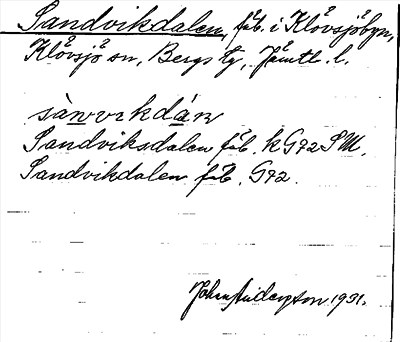 Sandvikdalen, fäb. i Klövsjöbyn,
Klövsjö sn, Bergs tg, Jämtl. l.
sànvikdán
Sandviksdalen fäb. kG72 SM.
Sandvikdalen fäb. G72.
Johan Anderzson 1931.